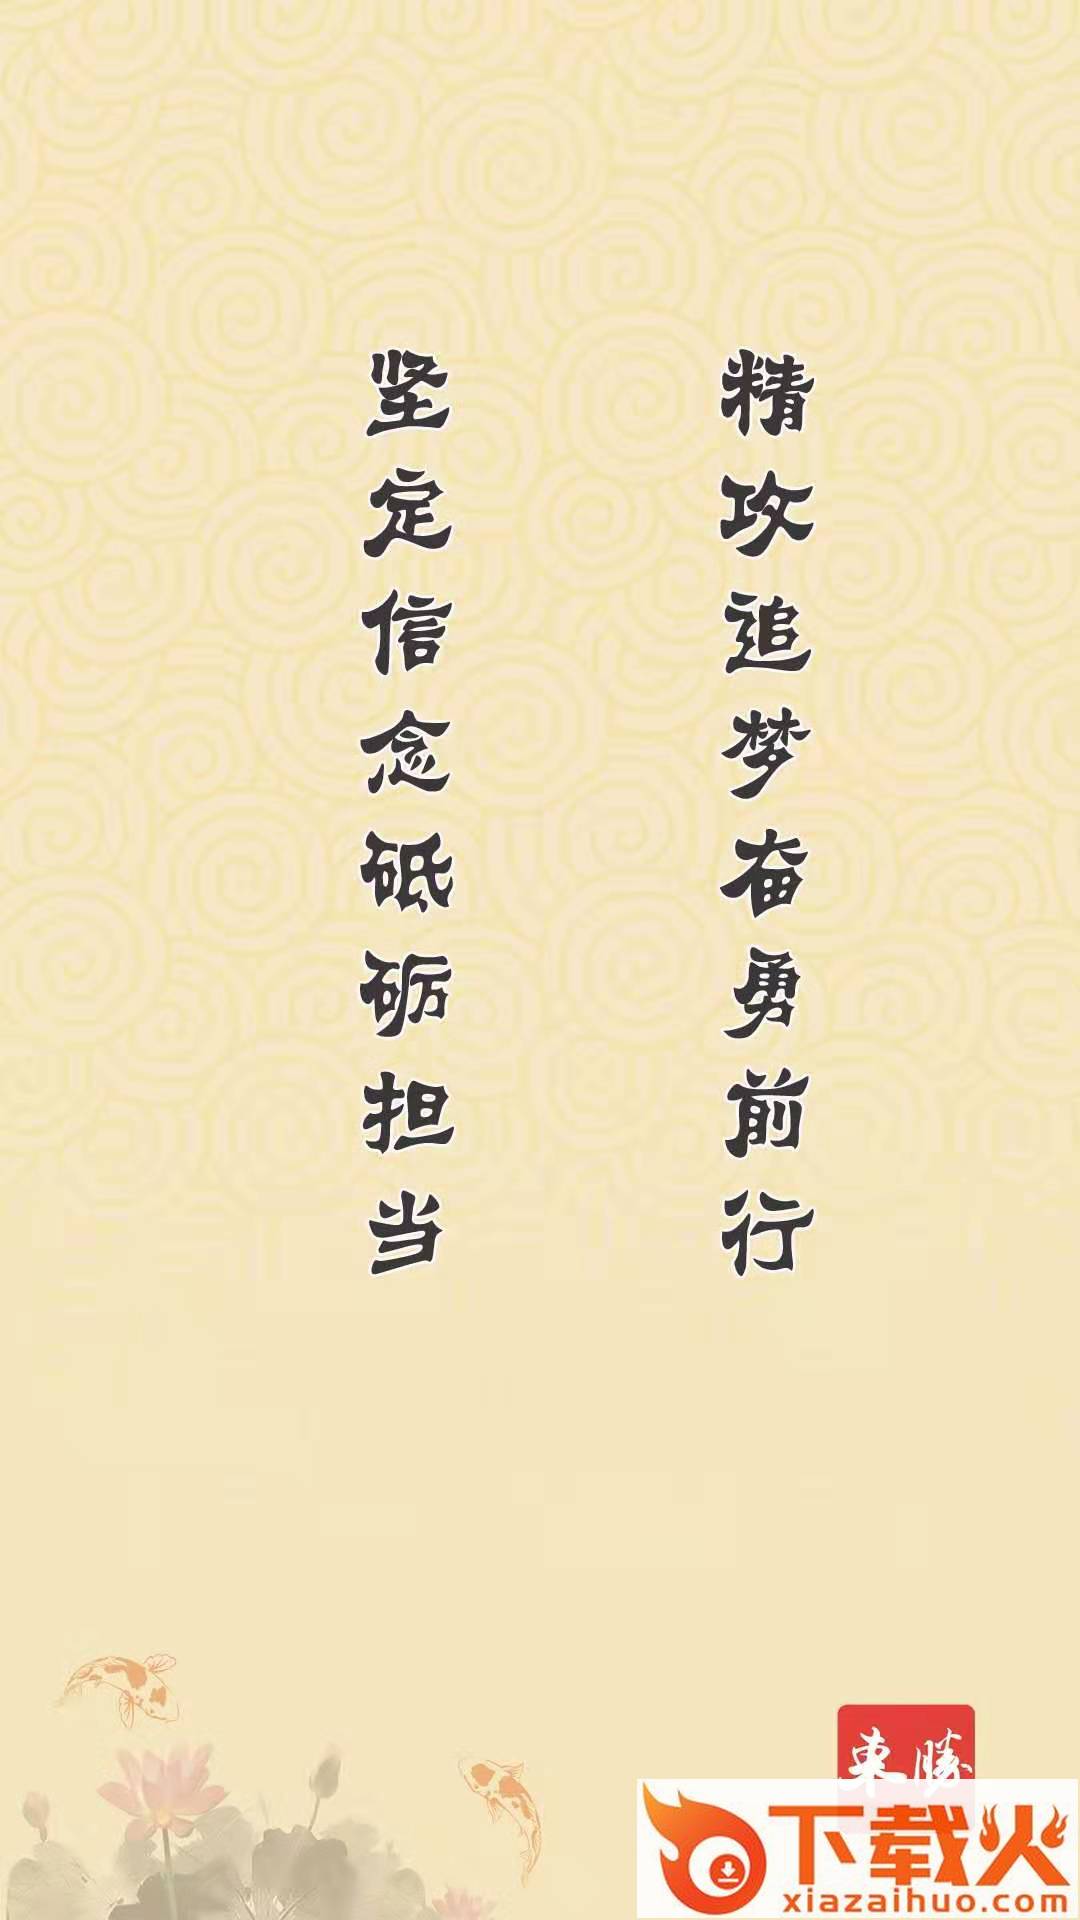 精攻追梦奋勇前行
坚定信念砥砺担当
東勝
下载火
xiazaihuo.com